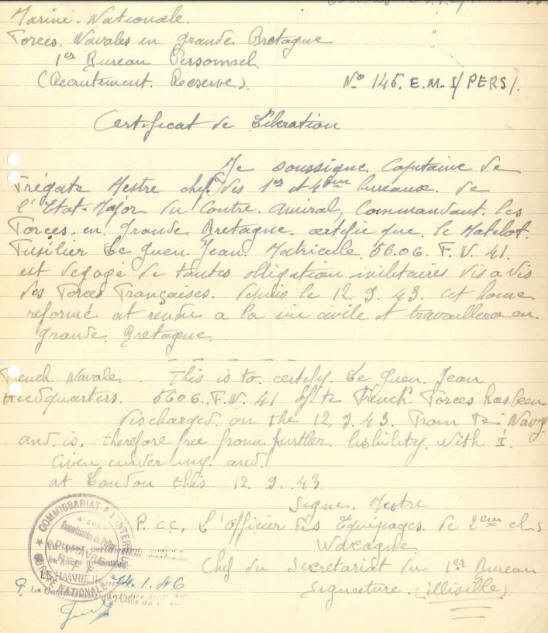 Marine. Nationale.
Forces. Navales en grande Bretagne
1er Bureau Personnel.
(Recrutement. Reserve).
N° 145. E.M.I/PERS/.
Certificat de Libération
Je soussigne. Capitaine de
Frégate Mestre chef des 1er et 4ème bureaux. de
l'Etat-Major du Contre. Amiral, Commandant. les
Forces. en grande Bretagne. certifie que. le Matelot.
Fusilier Le Guen. Jean. Matricule. 5606. F.N. 41.
est degagé de toutes obligation militaires vis a vis
des Forces Françaises. depuis le 12. 9. 43. cet homme
reformé et rendu a la vie civile et travaillera en.
grande. Bretagne.
French Navale. This is to. certify. Le Guen. Jean
Headquarters. 5606. F.N. 41 of te French Forces has been
discharged on the 12. 9. 43. From te Navy
and is. therefore free from further liability. With I.
Given under my. and
at London this 12. 9. 43
Signe. Mestre
P. CC. L'Officier des Equipages. de 2eme cl.
Wacagne.
Chef du Secretariat du 1er Bureau
Signature. (illisible)
COMMISSARIAT A L'INTER
NATIONALE
14.1.46